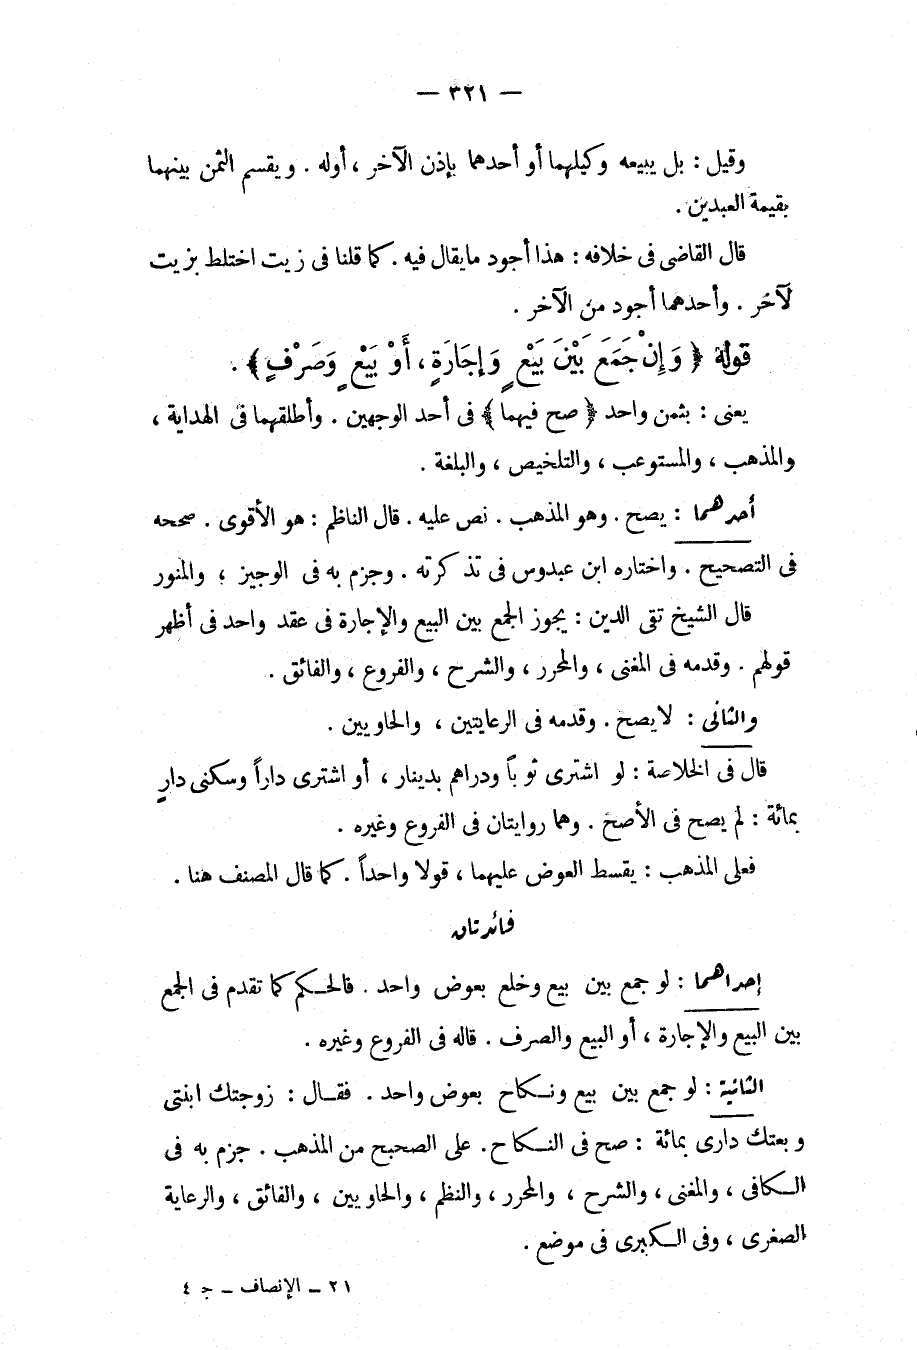 — ٣٢١ —
وقيل : بل يبيعه وكيلهما أو أحدهما بإذن الآخر ، أوله . ويقسم الثمن بينهما
بقيمة العبدين .
قال القاضى فى خلافه : هذا أجود مايقال فيه . كما قلنا فى زيت اختلط بزيت
لآخر . وأحدهما أجود من الآخر .
قوله ﴿ وَإِنْ جَمَعَ بَيْنَ بَيْعٍ وَإِجَارَةٍ ، أَوْ بَيْعٍ وَصَرْفٍ ﴾ .
يعنى : بثمن واحد ﴿ صح فيهما ﴾ فى أحد الوجهين . وأطلقهما فى الهداية ،
والمذهب ، والمستوعب ، والتلخيص ، والبلغة .
أحدهما : يصح . وهو المذهب . نص عليه . قال الناظم : هو الأقوى . صححه
فى التصحيح . واختاره ابن عبدوس فى تذكرته . وجزم به فى الوجيز ؛ والمنور
قال الشيخ تقى الدين : يجوز الجمع بين البيع والإجارة فى عقد واحد فى أظهر
قولهم . وقدمه فى المغنى ، والمحرر ، والشرح ، والفروع ، والفائق .
والثانى : لا يصح . وقدمه فى الرعايتين ، والحاويين .
قال فى الخلاصة : لو اشترى ثوباً ودراهم بدينار ، أو اشترى داراً وسكنى دارٍ
بمائة : لم يصح فى الأصح . وهما روايتان فى الفروع وغيره .
فعلى المذهب : يقسط العوض عليهما ، قولا واحداً . كما قال المصنف هنا .
فائدتان
إحداهما : لو جمع بين بيع وخلع بعوض واحد . فالحكم كما تقدم فى الجمع
بين البيع والإجارة ، أو البيع والصرف . قاله فى الفروع وغيره .
الثانية : لو جمع بين بيع ونكاح بعوض واحد . فقال : زوجتك ابنتى
وبعتك دارى بمائة : صح فى النكاح . على الصحيح من المذهب . جزم به فى
الكافى ، والمغنى ، والشرح ، والمحرر ، والنظم ، والحاويين ، والفائق ، والرعاية
الصغرى ، وفى الكبرى فى موضع .
٢١ ــ الإنصاف ــ جـ ٤